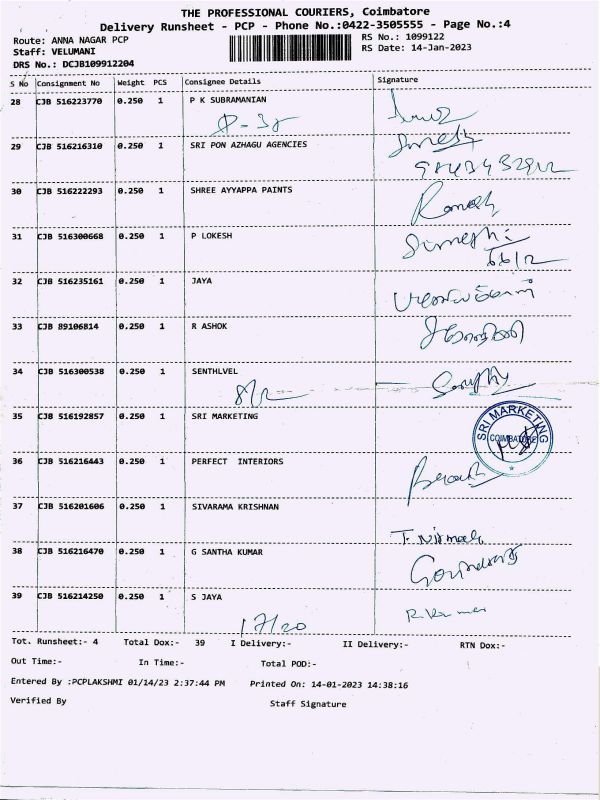 THE PROFESSIONAL COURIERS, Coimbatore
Delivery Runsheet - PCP - Phone No.:0422-3505555 - Page No.:4
Route: ANNA NAGAR PCP RS No.: 1099122
Staff: VELUMANI RS Date: 14-Jan-2023
DRS No.: DCJB109912204
S No Consignment No Weight PCS Consignee Details Signature
28 CJB 516223770 0.250 1 P K SUBRAMANIAN
29 CJB 516216310 0.250 1 SRI PON AZHAGU AGENCIES
30 CJB 516222293 0.250 1 SHREE AYYAPPA PAINTS
Ramesh
31 CJB 516300668 0.250 1 P LOKESH
66/2
32 CJB 516235161 0.250 1 JAYA
33 CJB 89106814 0.250 1 R ASHOK
34 CJB 516300538 0.250 1 SENTHLVEL
35 CJB 516192857 0.250 1 SRI MARKETING
SRI MARKETING
COIMBATORE
36 CJB 516216443 0.250 1 PERFECT INTERIORS
37 CJB 516201606 0.250 1 SIVARAMA KRISHNAN
38 CJB 516216470 0.250 1 G SANTHA KUMAR
39 CJB 516214250 0.250 1 S JAYA
17/20 R.Kumar
Tot. Runsheet:- 4 Total Dox:- 39 I Delivery:- II Delivery:- RTN Dox:-
Out Time:- In Time:- Total POD:-
Entered By :PCPLAKSHMI 01/14/23 2:37:44 PM Printed On: 14-01-2023 14:38:16
Verified By Staff Signature